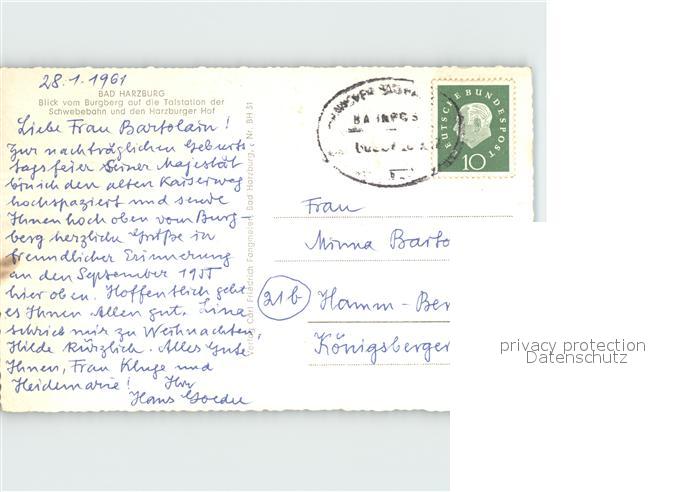 28.1.1961
BAD HARZBURG
Blick vom Burgberg auf die Talstation der
Schwebebahn und den Harzburger Hof
Liebe Frau Bartolain!
Zur nachträglichen Geburts-
tagsfeier Seiner Majestät
bin ich den alten Kaiserweg
hochspaziert und sende
Ihnen hoch oben vom Burg-
berg herzliche Grüße in
freundlicher Erinnerung
an den September 1955
hier oben. Hoffentlich geht
es Ihnen Allen gut. Lina
schrieb mir zu Weihnachten,
Hilde kürzlich. Alles Gute
Ihnen, Frau Kluge und
Heidemarie! Ihr
Hans
Verlag Carl Friedrich Fangmeier, Bad Harzburg, Nr. BH 51
DEUTSCHE BUNDESPOST
10
Frau
Minna Barto
21b
Hamm-Ber
Königsberger
privacy protection
Datenschutz